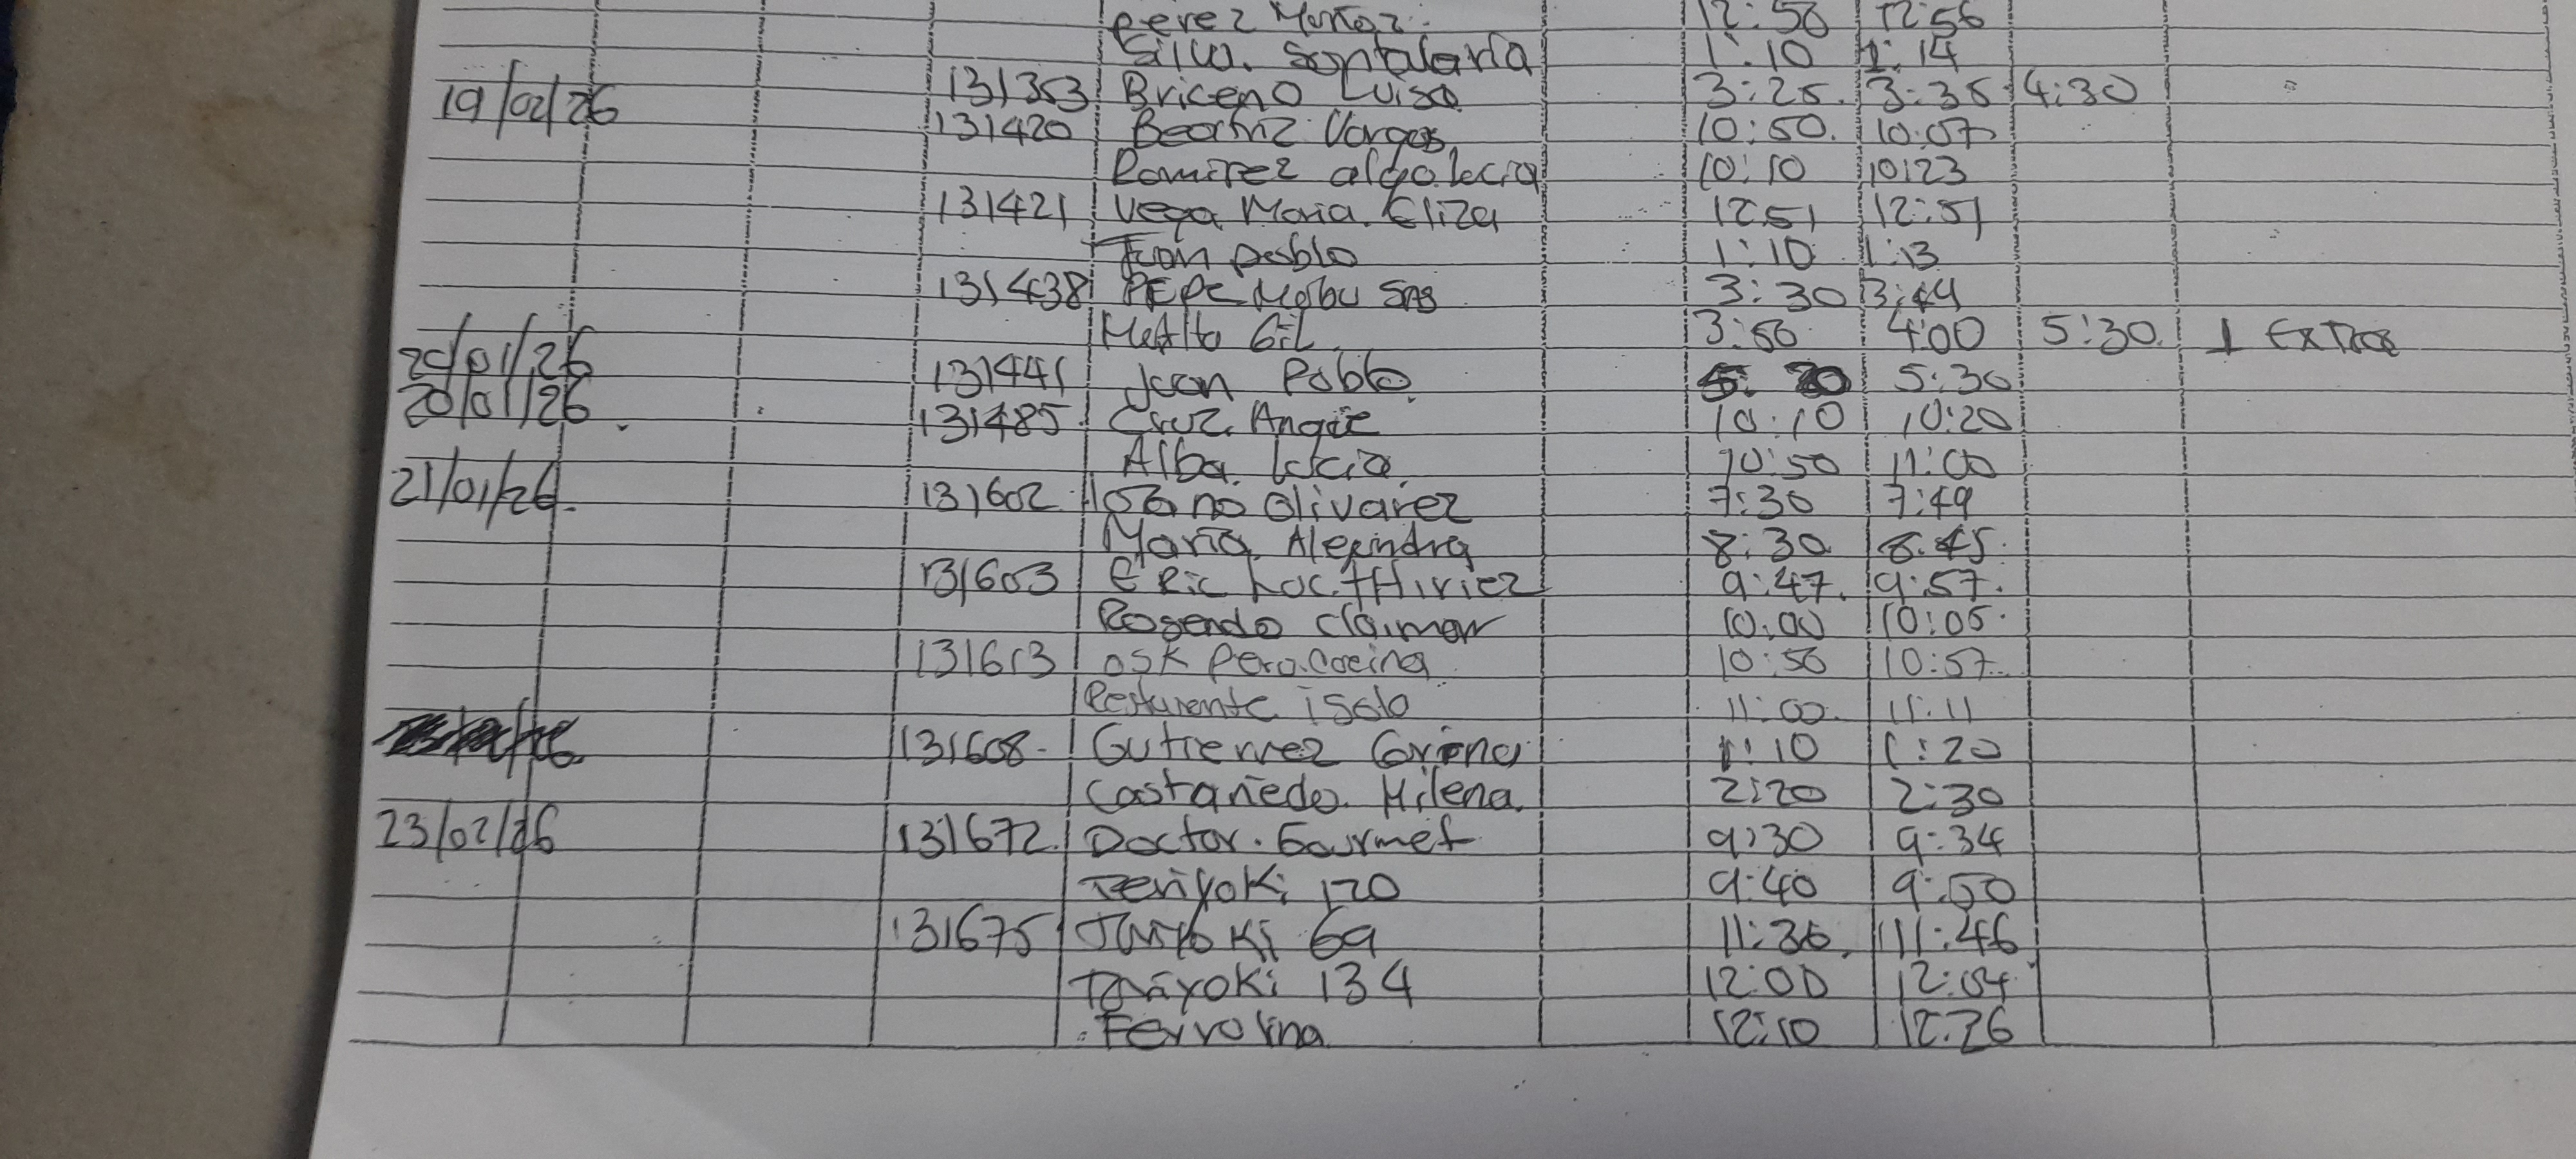 Perez 12:50 12:56
Silva. 1:10 1:14
131353 Briceno Luisa 3:25. 3:35 4:30
19/02/26 131420 Beatriz Vargas 10:50. 10:07
Ramirez 10:10 10:23
131421 Vega Maria. Eliza 12:51 12:51
Juan pablo 1:10 1:13
131438 PEPE SAS 3:30 3:44
Gil 3:50 4:00 5:30. 1 Extras
20/01/26 131441 Juan Pablo. 5:30
20/01/26. 131485. Cruz. Angie 10:10 10:20
Alba. 10:50 11:00
21/01/26. 131602. Olivarez 7:30 7:49
Maria. Alejandra 8:30. 8:45.
131603 ERic 9:47. 9:57.
Rosendo 10:00 10:05.
131613 OSK Pera.Cocina 10:50 10:57.
isolo 11:00. 11:11
131608. Gutierrez 1:10 1:20
Castañeda. Milena. 2:20 2:30
23/02/26 131672. Doctor. Gourmet 9:30 9:34
Teriyoki 170 9:40 9:50
131675 69 11:36. 11:46
134 12:00 12:04
12:10 12:26